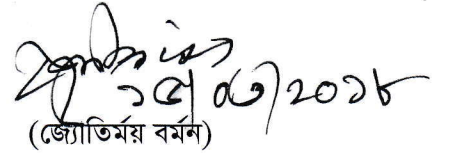 ১৫/০৩/২০১৮
(জ্যোতির্ময় বর্মন)